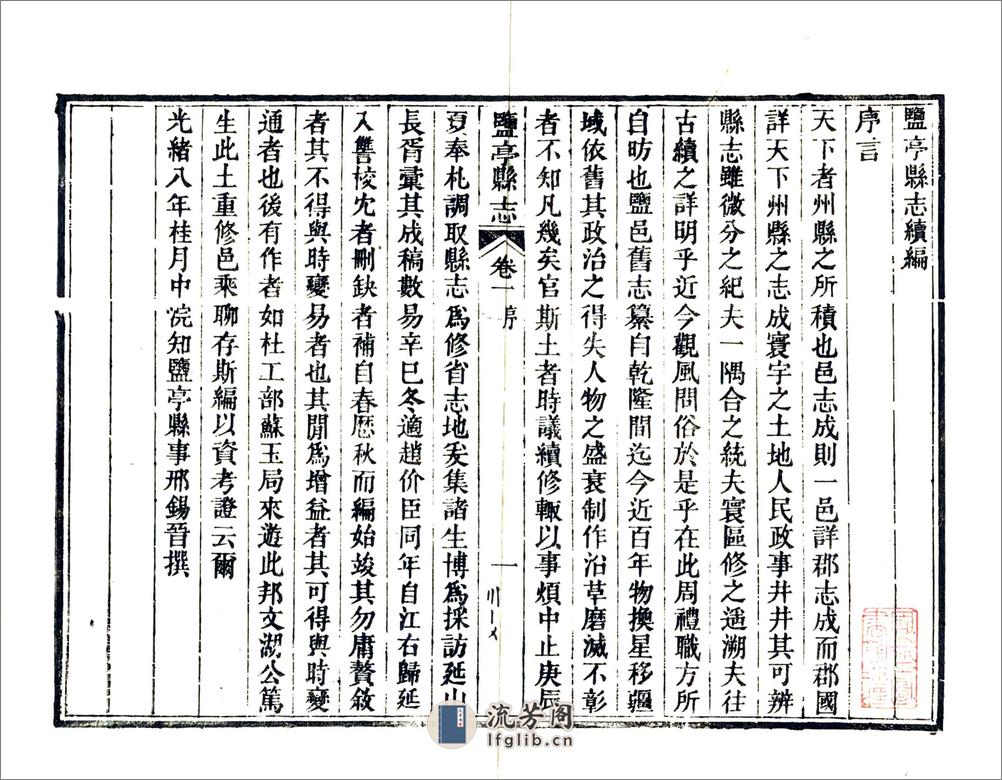 鹽亭縣志續編
序言
天下者州縣之所積也邑志成則一邑詳郡志成而郡國
詳天下州縣之志成寰宇之土地人民政事井井其可辨
縣志雖微分之紀夫一隅合之統夫寰區修之遥溯夫往
古續之詳明乎近今觀風問俗於是乎在此周禮職方所
自昉也鹽邑舊志纂自乾隆間迄今近百年物換星移疆
域依舊其政治之得失人物之盛衰制作沿革磨滅不彰
者不知凡幾矣官斯土者時議續修輒以事煩中止庚辰
鹽亭縣志 卷一 序 一
夏奉札調取縣志爲修省志地爰集諸生博爲採訪延山
長胥彚其成稿數易辛巳冬適趙价臣同年自江右歸延
入讐校冗者刪缺者補自春歷秋而編始竣其勿庸贅敘
者其不得與時變易者也其閒爲增益者其可得與時變
通者也後有作者如杜工部蘇玉局來遊此邦文湖公篤
生此土重修邑乘聊存斯編以資考證云爾
光緒八年桂月中浣知鹽亭縣事邢錫晉撰
流芳阁
lfglib.cn